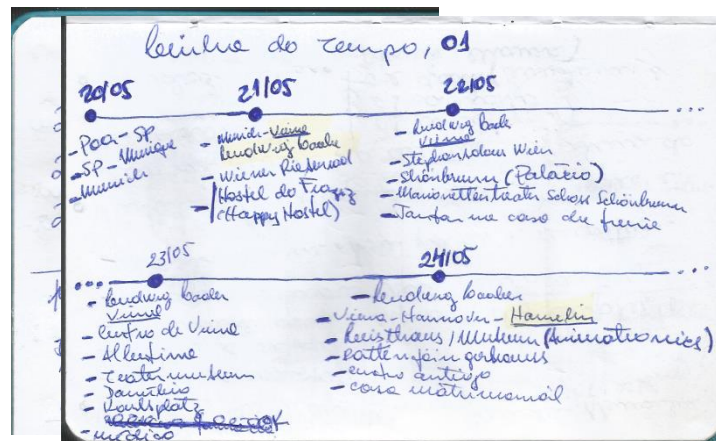 Linha do tempo, 01
20/05
- Poa - SP
- SP - Munique
- Munich
21/05
- Munich - Viena
Ludwig Boden
- Wiener Riesenrad
- Hostel do
(Happy Hostel)
22/05
Viena
- Stephansdom Wien
- Shönbrunn (Palácio)
- Marionettentheater Schloss Schönbrunn
- Jantar na casa da
23/05
Viena
- Centro de Viena
- Albertina
- Teatermuseum
- Danúbio
- Karlsplatz
- médico
24/05
- Viena - Hannover - Hamelin
/ Museum (Animatronics)
- centro antigo
- casa matrimonial